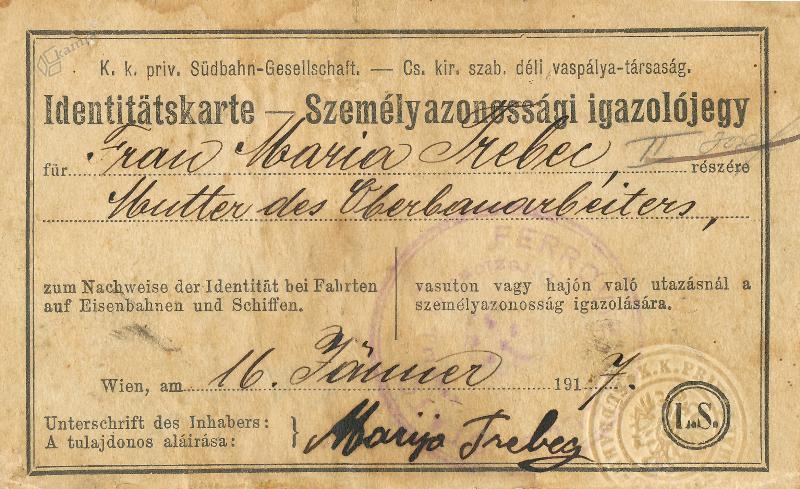 kamra
K. k. priv. Südbahn-Gesellschaft. — Cs. kir. szab. déli vaspálya-társaság.
Identitätskarte — Személyazonossági igazolójegy
für Frau Maria Trebec, II részére
Mutter des Oberbauarbeiters,
FERRO
zum Nachweise der Identität bei Fahrten
auf Eisenbahnen und Schiffen.
vasuton vagy hajón való utazásnál a
személyazonosság igazolására.
Wien, am 16. Jänner 1917.
Unterschrift des Inhabers:
A tulajdonos aláirása: } Marija Trebeg
L.S.